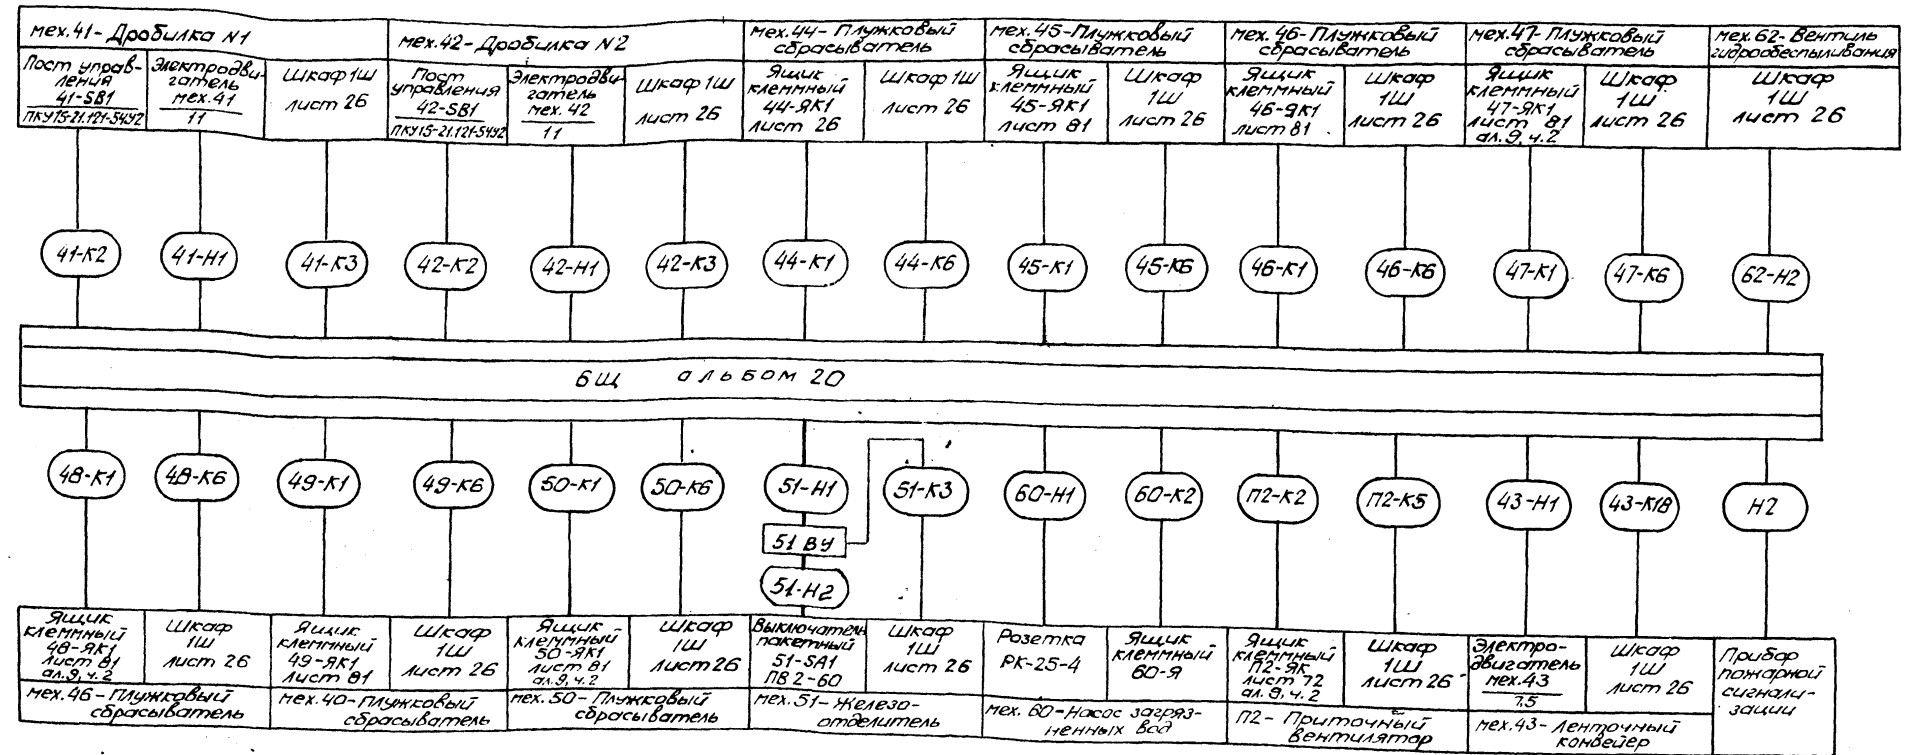 мех.41-Дробилка N1
мех.42-Дробилка N2
мех.44-Плужковый
сбрасыватель
мех.45-Плужковый
сбрасыватель
мех.46-Плужковый
сбрасыватель
мех.47-Плужковый
сбрасыватель
мех.62-Вентиль
гидрообеспыливания
Пост управ-
ления
41-SB1
ПКУ15-21.121-54У2
Электродви-
гатель
мех.41
11
Шкаф 1Ш
лист 26
Пост
управления
42-SB1
ПКУ15-21.121-54У2
Электродви-
гатель
мех.42
11
Шкаф 1Ш
лист 26
Ящик
клеммный
44-ЯК1
лист 26
Шкаф 1Ш
лист 26
Ящик
клеммный
45-ЯК1
лист 81
Шкаф
1Ш
лист 26
Ящик
клеммный
46-ЯК1
лист 81
Шкаф
1Ш
лист 26
Ящик
клеммный
47-ЯК1
лист 81
ал.9, ч.2
Шкаф
1Ш
лист 26
Шкаф
1Ш
лист 26
41-К2
41-Н1
41-К3
42-К2
42-Н1
42-К3
44-К1
44-К6
45-К1
45-К6
46-К1
46-К6
47-К1
47-К6
62-Н2
6Щ альбом 20
48-К1
48-К6
49-К1
49-К6
50-К1
50-К6
51-Н1
51-К3
60-Н1
60-К2
П2-К2
П2-К5
43-Н1
43-К18
Н2
51 ВУ
51-Н2
Ящик
клеммный
48-ЯК1
лист 81
ал.9, ч.2
Шкаф
1Ш
лист 26
Ящик
клеммный
49-ЯК1
лист 81
Шкаф
1Ш
лист 26
Ящик
клеммный
50-ЯК1
лист 81
ал.9, ч.2
Шкаф
1Ш
лист 26
Выключатель
пакетный
51-SA1
ПВ2-60
Шкаф
1Ш
лист 26
Розетка
РК-25-4
Ящик
клеммный
60-Я
Ящик
клеммный
П2-ЯК
лист 72
ал.9, ч.2
Шкаф
1Ш
лист 26
Электро-
двигатель
мех.43
7.5
Шкаф
1Ш
лист 26
Прибор
пожарной
сигнали-
зации
мех.46-Плужковый
сбрасыватель
мех.40-Плужковый
сбрасыватель
мех.50-Плужковый
сбрасыватель
мех.51-Железо-
отделитель
мех.60-Насос загряз-
ненных вод
П2-Приточный
вентилятор
мех.43-Ленточный
конвейер